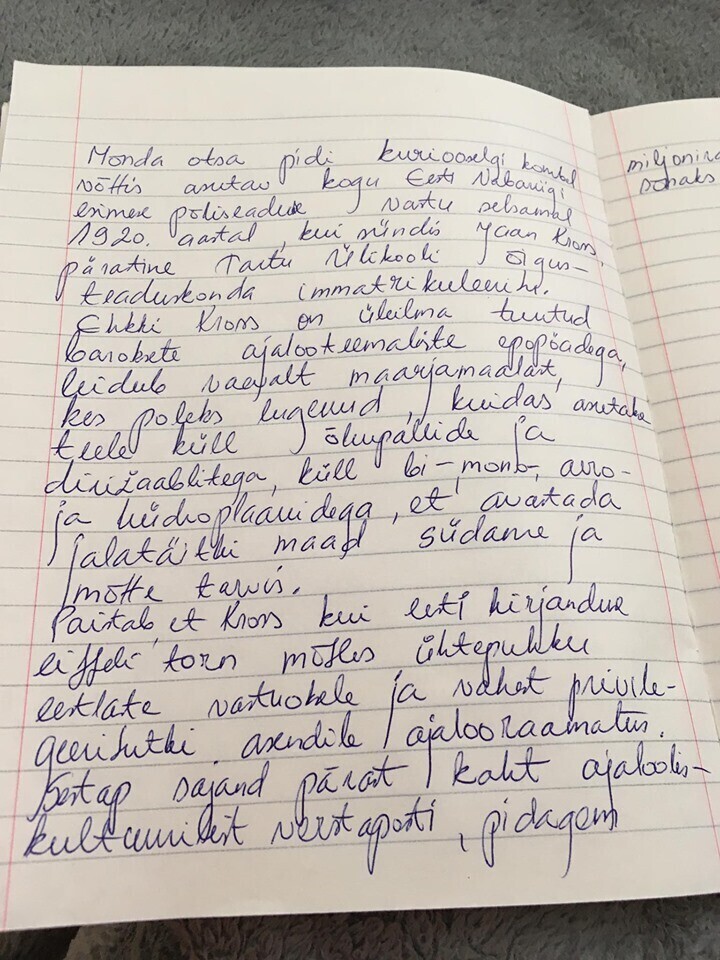 Monda otsa pidi kuriooselgi kombel
võttis asutav kogu Eesti Vabariigi
esimese põhiseaduse vastu selsamal
1920. aastal, kui sündis Jaan Kross,
pärastine Tartu Ülikooli õigus-
teaduskonda immatrikuleeritu.
Ehkki Kross on üleilma tuntud
baroksete ajalooteemaliste epopöadega,
leidub vaevalt maarjamaalast,
kes poleks lugenud, kuidas asutakse
teele küll õhupallide ja
dirižaablitega, küll bi-, mono-, avio-
ja hüdroplaanidega, et avastada
jalatäitki maad südame ja
mõtte tarvis.
Paistab, et Kross kui eesti kirjanduse
eiffeli torn mõtles ühtepuhku
eestlaste vastuokste ja vahest privile-
geeritutki asendile ajalooraamatus.
Sestap sajand pärast kaht ajaloolis-
kultuurilist verstaposti, pidagem
miljonira
sohaks